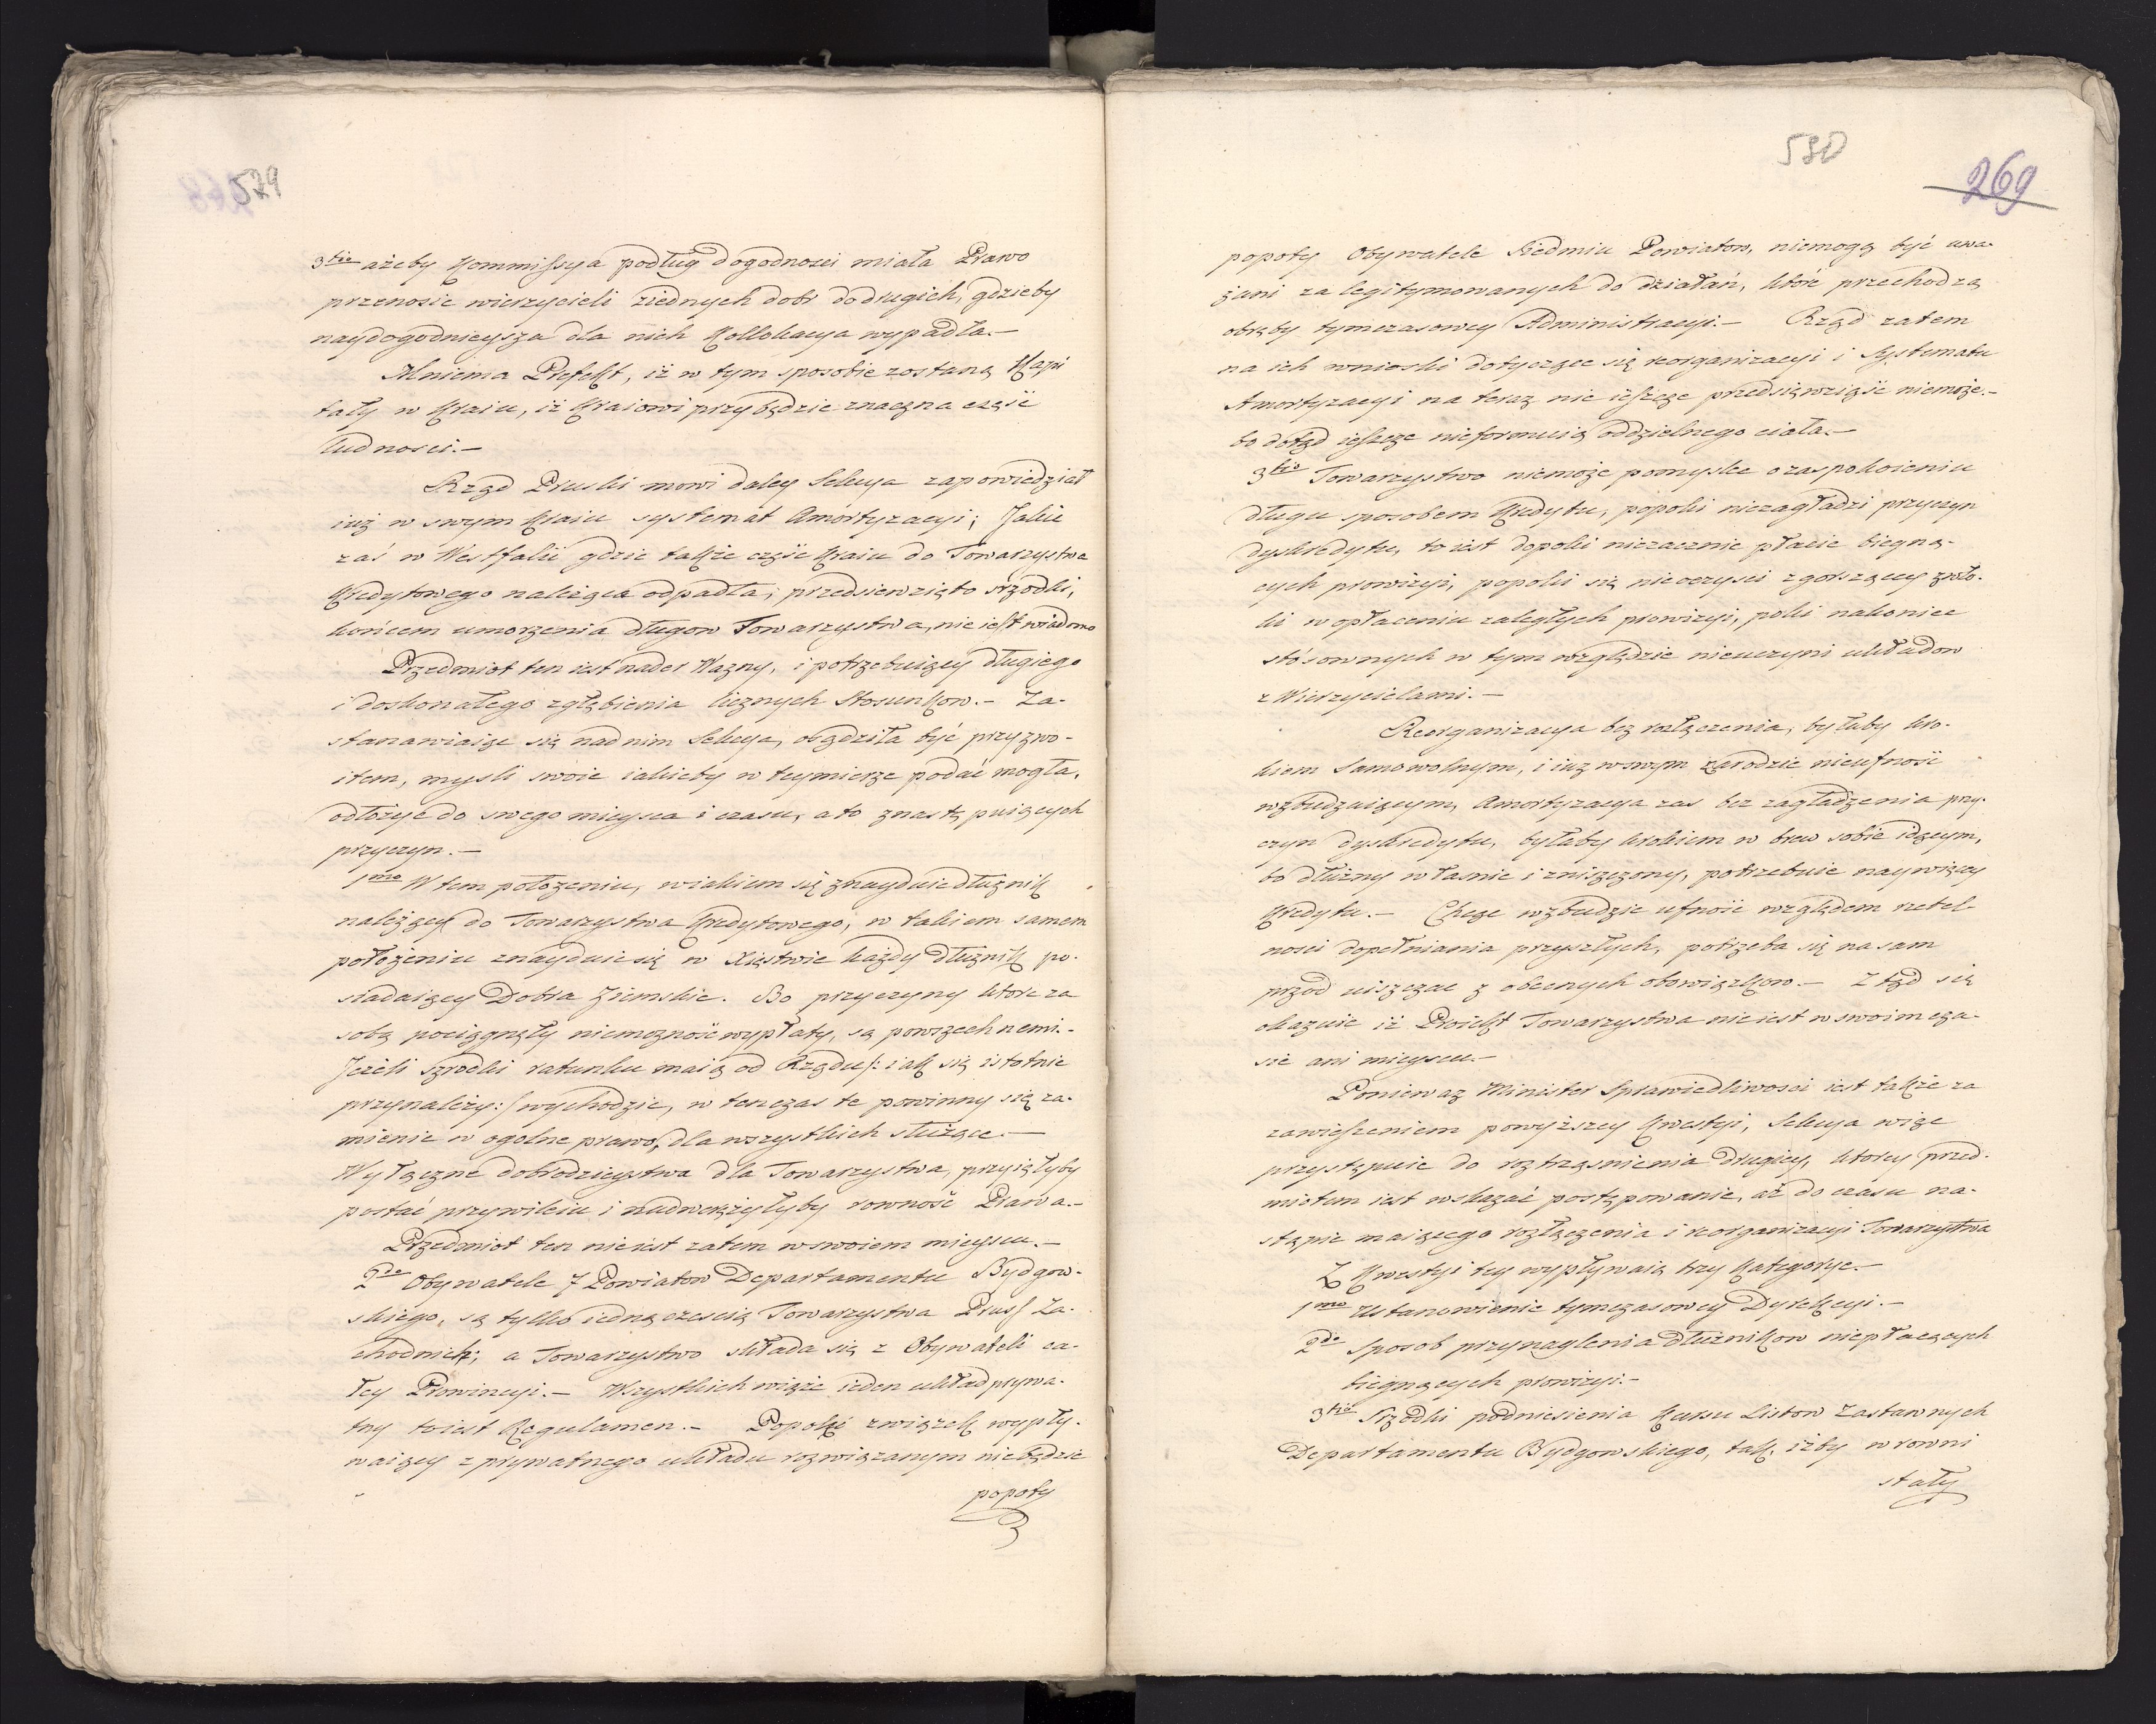 579
3tio ażeby Kommissya podług dogodnosci miała Prawo
przenosic wierzycieli ziednych dobr do drugich, gdzieby
naydogodnieysza dla nich Kollokacya wypadła.—
Mniema Prefekt, iż w tym sposobie zostaną Kapi
tały w Kraiu, iż Kraiowi przybędzie znaczna część
ludnosci.—
Rząd Pruski mowi daley Sekcya zapowiedział
iuż w swym Kraiu systemat Amortyzacyi; Jakie
zaś w Westfalii gdzie także część Kraiu do Towarzystwa
Kredytowego należąca odpadła, przedsiewzięto srzodki,
końcem umorzenia długow Towarzystwa, nie iest wiadomo
Przedmiot ten iest nader Wazny, i potrzebuiący długiego
i doskonałego zgłębienia licznych Stosunkow.— Za-
stanawiaiąc się nad nim Sekcya, osądziła być przyzwo-
item, mysli swoie iakieby w teymierze podać mogła,
odłożyć do swego mieysca i czasu, a to znastępuiących
przyczyn.—
1mo W tem położeniu, wiakiem się znayduie dłużnik
należący do Towarzystwa Kredytowego, w takiem samem
położeniu znayduie się w Xięstwie każdy dłużnik po-
siadaiący Dobra Ziemskie. Bo przyczyny ktore za
sobą pociągnęły niemożność wypłaty, są powszechnemi.-
Jeżeli szrodki ratunku maią od Rządu /: iak się istotnie
przynależy :/ wychodzic, w tenczas te powinny się za-
mienic w ogolne prawo, dla wszystkich służące.—
Wyłączne dobrodzieystwa dla Towarzystwa, przyięłyby
postać przywileiu i nadwerężyłyby rowność Prawa.—
Przedmiot ten nie iest zatem w swoiem mieyscu.—
2do Obywatele 7 Powiatow Departamentu Bydgow-
skiego, są tylko iedną częscią Towarzystwa Pruss Za-
chodnich; a Towarzystwo składa się z Obywateli ca-
łey Prowincyi.— Wszystkich wiąże ieden układ prywa-
tny toiest Regulamen.— Popoki związek wypły-
waiący z prywatnego układu rozwiązanym niebędzie
popoty
580
269
popoty Obywatele Siedmiu Powiatow, niemogą być uwa-
żani za legitymowanych do działań, ktore przechodzą
obręby tymczasowey Administracyi.— Rząd zatem
na ich wnioski dotyczące się reorganizacyi i Systematu
Amortyzacyi na teraz nic ieszcze przedsięwziąść niemoże.—
bo dotąd ieszcze nieformuią oddzielnego ciała.—
3tio Towarzystwo niemoże pomyslec o zaspokoieniu
długu sposobem Kredytu, popoki niezagładzi przyczyn
dyskredytu, to iest dopoki niezacznie płacic biegną-
cych prowizyi, popoki się nieoczysci z gorszącey zwło-
ki w opłaceniu zaległych prowizyi, poki nakoniec
stósownych w tym względzie nieuczyni układow
z Wierzycielami.—
Reorganizacya bez rozłączenia, byłaby kro-
kiem Samowolnym, i iuż wswym zarodzie nieufność
wzbudzaiącym, Amortyzacya zas bez zagładzenia przy-
czyn dyskredytu, byłaby krokiem w brew sobie idącym,
bo dłużny własnie i zniszczony, potrzebuie naywięcey
Kredytu.— Chcąc wzbudzic ufność względem rzetel-
nosci dopełniania przyszłych, potrzeba się nasam
przod uiszczac z obecnych obowiązkow.— Z tąd się
okazuie iż Proiekt Towarzystwa nie iest w swoim cza-
sie ani mieyscu.—
Poniewaz Minister Sprawiedliwosci iest także za
zawieszeniem powyższey Kwestyi, Sekcya więc
przystępuie do roztrząsnienia drugiey, ktorey przed-
miotem iest wskazać postępowanie, aż do czasu na-
stąpic maiącego rozłączenia i reorganizacyi Towarzystwa
Z Kwestyi tey wypływaią trzy Kategorye.—
1mo Ustanowienie tymczasowey Dyrekcyi.—
2do Sposob przynaglenia dłużnikow niepłacących
biegnących prowizyi.—
3tio Srzodki podniesienia Kursu Listow Zastawnych
Departamentu Bydgowskiego, tak, iżby w rowni
stały